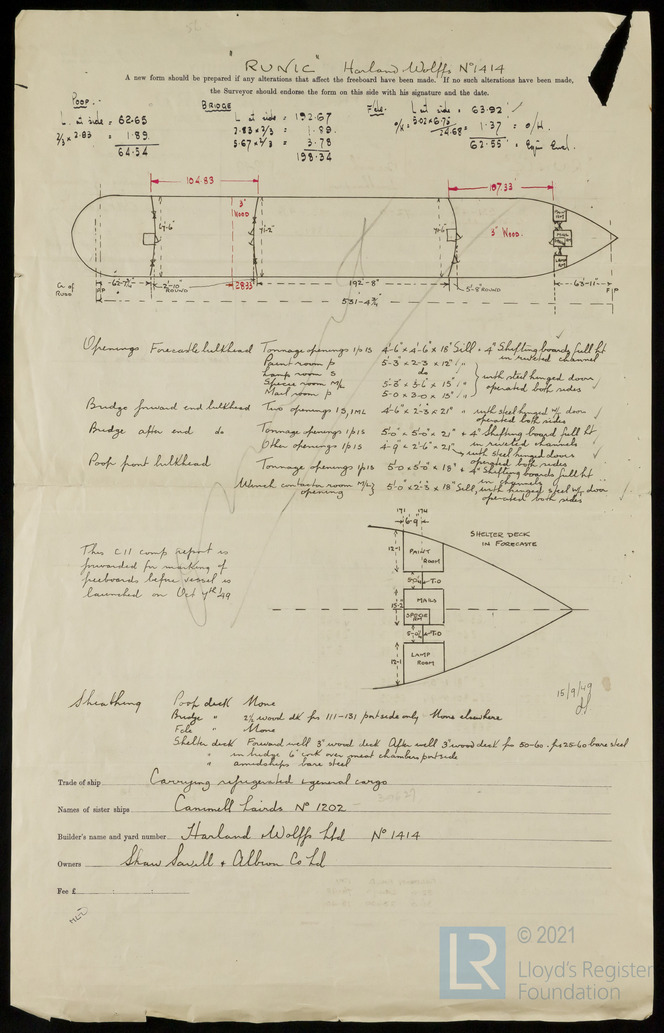 "RUNIC" Harland Wolffs No 1414
A new form should be prepared if any alterations that affect the freeboard have been made. If no such alterations have been made,
the Surveyor should endorse the form on this side with his signature and the date.
POOP.
L at side = 62.65
2/3 x 2.83 = 1.89
64.54
BRIDGE
L at side = 192.67
2.83 x 2/3 = 1.89
5.67 x 2/3 = 3.78
198.34
Fcle.
L at side = 63.92
1.37 = O/H.
62.55 = Equiv
104.83
107.33
3" WOOD
3" WOOD.
2'-10" ROUND
28.33
192'-8"
5'-8" ROUND
63'-11"
531-4 3/4"
Openings Forecastle bulkhead Tonnage openings 1P 1S 4'-6" x 4'-6" x 18" Sill + 4" Shifting boards full ht
in riveted channel
Paint room P 5'-3" x 2'-3 x 12" "
Lamp room S do
Specie room M/L 5'-6 x 3'-6" x 15" "
Mail room P 5'-0 x 3-0 x 15" "
with steel hinged doors
operated both sides
Bridge forward end bulkhead Two openings 1S, 1ML 4'-6" x 2'-3 x 21" " with steel hinged W/T door
operated both sides
Bridge after end do Tonnage openings 1P 1S 5'-0" x 5'-0" x 21" + 4" Shifting board full ht
in riveted channels
Other openings 1P 1S 4'-9" x 2'-6" x 21" with steel hinged doors
operated both sides
Poop front bulkhead Tonnage openings 1P 1S 5'-0 x 5'-0" x 18" + 4" Shifting boards full ht
in channels
Winch contactor room M/L opening 5'-0" x 2'-3 x 18" Sill, with hinged steel W/T door
operated both sides
171 174
6'-9"
SHELTER DECK
IN FORECASTLE
12-1
PAINT
ROOM
5'-0" T.O
MAILS
15-2
SPECIE
RM
5-0" T.O
LAMP
ROOM
12-1
This C.11 comp report is
forwarded for marking of
freeboards before vessel is
launched on Oct 7th '49
15/9/49
Sheathing Poop deck None
Bridge " 2 1/2 wood dk frs 111-131 port side only None elsewhere
Fcle " None
Shelter deck Forward well 3" wood deck After well 3" wood deck frs 50-60. frs 25-60 bare steel
" in bridge 6" cork over meat chambers port side
" amidships bare steel
Trade of ship Carrying refrigerated & general cargo
Names of sister ships Cammell Lairds No 1202
Builder's name and yard number Harland & Wolffs Ltd No 1414
Owners Shaw Savill & Albion Co Ld
Fee £
LR
© 2021
Lloyd's Register
Foundation